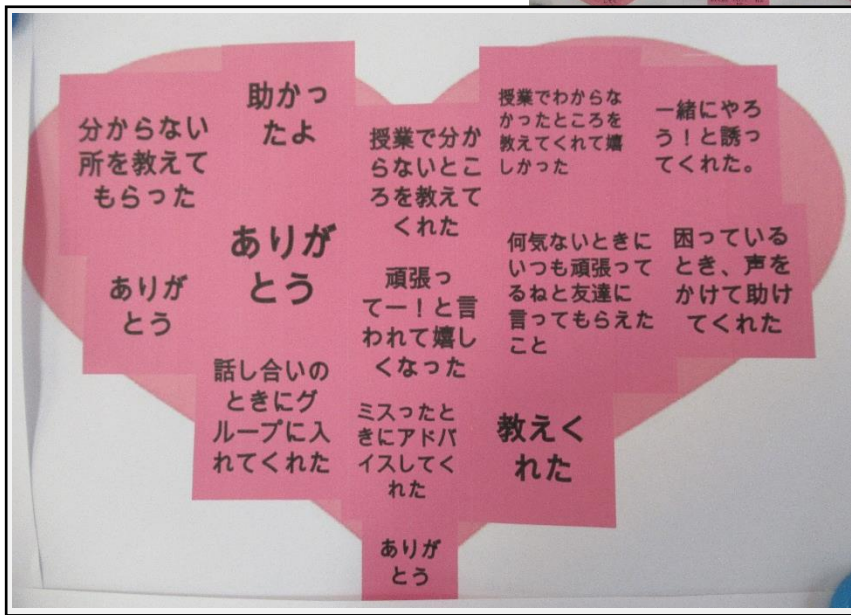 分からない
所を教えて
もらった
助かっ
たよ
授業で分か
らないとこ
ろを教えて
くれた
授業でわからな
かったところを
教えてくれて嬉
しかった
一緒にやろ
う！と誘っ
てくれた。
ありが
とう
ありが
とう
頑張っ
てー！と言
われて嬉し
くなった
何気ないときに
いつも頑張って
るねと友達に
言ってもらえた
こと
困っている
とき、声を
かけて助け
てくれた
話し合いの
ときにグ
ループに入
れてくれた
ミスったと
きにアドバ
イスしてく
れた
教えく
れた
ありが
とう